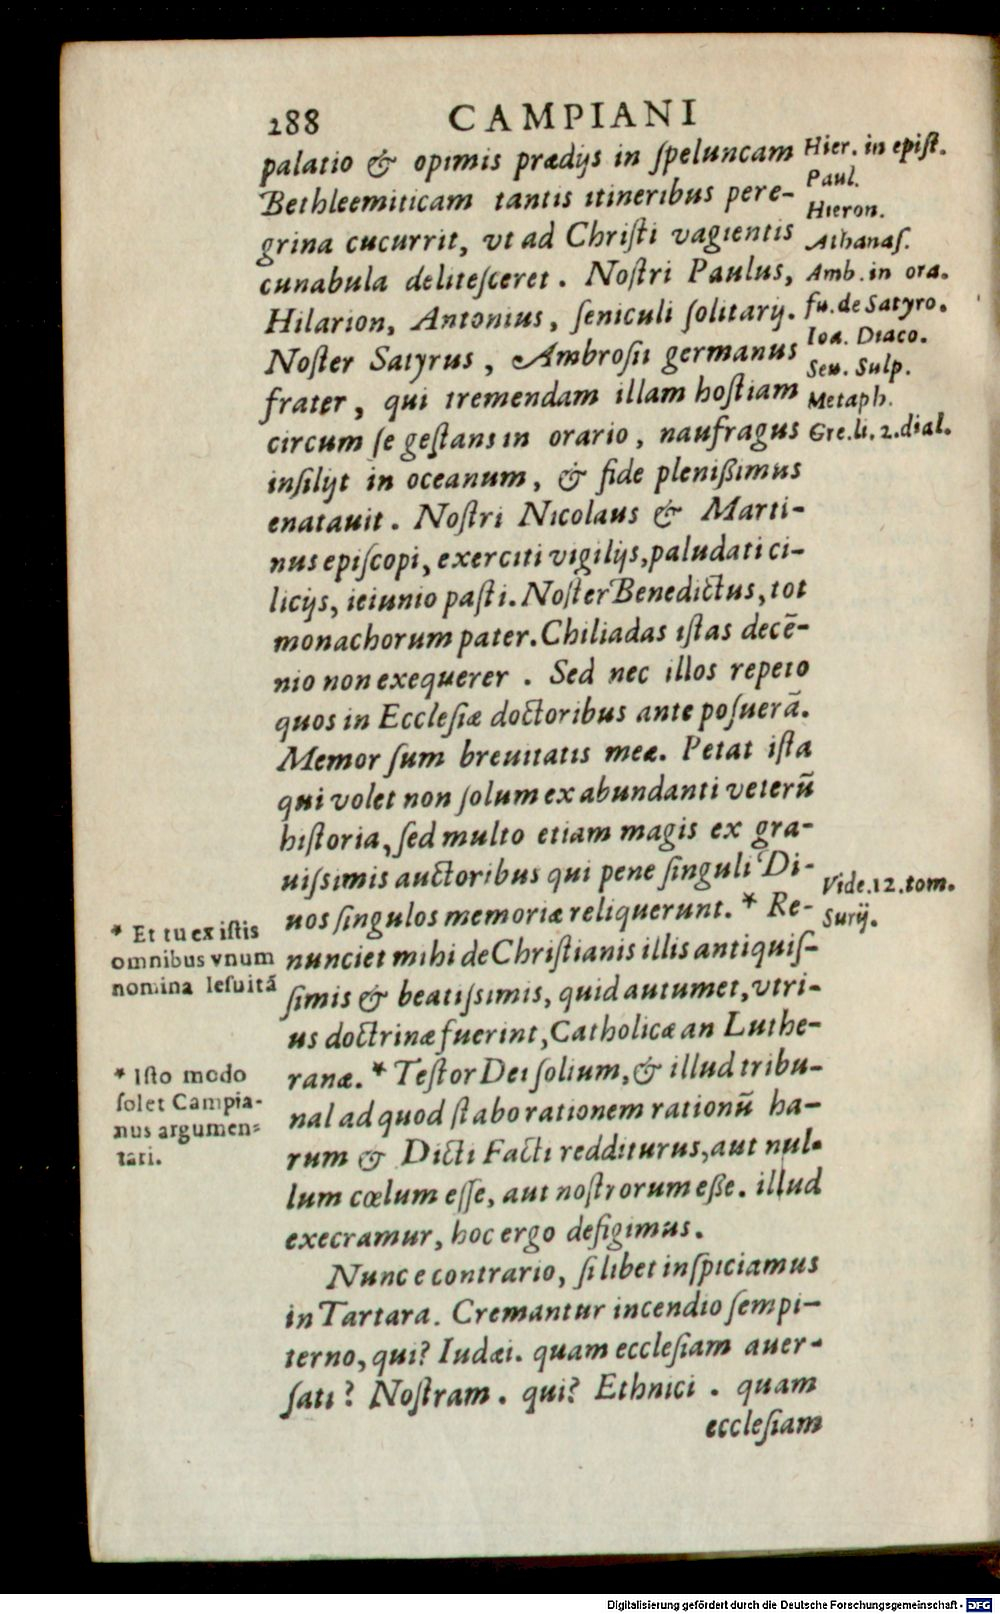 288 CAMPIANI
palatio & opimis prædijs in ſpeluncam
Bethleemiticam tantis itineribus pere-
grina cucurrit, vt ad Chriſti vagientis
cunabula deliteſceret. Noſtri Paulus,
Hilarion, Antonius, ſeniculi ſolitarij.
Noſter Satyrus, Ambroſii germanus
frater, qui tremendam illam hoſtiam
circum ſe geſtans in orario, naufragus
inſilijt in oceanum, & fide pleniſſimus
enatauit. Noſtri Nicolaus & Marti-
nus epiſcopi, exerciti vigilijs, paludati ci-
licijs, ieiunio paſti. Noſter Benedictus, tot
monachorum pater. Chiliadas iſtas decē-
nio non exequerer. Sed nec illos repeto
quos in Eccleſiæ doctoribus ante poſuerā.
Memor ſum breuitatis meæ. Petat iſta
qui volet non ſolum ex abundanti veterū
hiſtoria, ſed multo etiam magis ex gra-
uiſsimis auctoribus qui pene ſinguli Di-
uos ſingulos memoriæ reliquerunt. * Re-
nunciet mihi de Chriſtianis illis antiquiſ-
ſimis & beatiſsimis, quid autumet, vtri-
us doctrinæ fuerint, Catholicæ an Luthe-
ranæ. * Teſtor Dei ſolium, & illud tribu-
nal ad quod ſtabo rationem rationū ha-
rum & Dicti Facti redditurus, aut nul-
lum cœlum eſſe, aut noſtrorum eße. illud
execramur, hoc ergo defigimus.
Nunc e contrario, ſi libet inſpiciamus
in Tartara. Cremantur incendio ſempi-
terno, qui? Iudæi. quam eccleſiam auer-
ſati? Noſtram. qui? Ethnici. quam
eccleſiam
Hier. in epiſt.
Paul.
Hieron.
Athanaſ.
Amb. in ora.
fu. de Satyro.
Ioa. Diaco.
Seu. Sulp.
Metaph.
Gre. li. 2. dial.
Vide. 12. tom.
Surij.
* Et tu ex iſtis
omnibus vnum
nomina Ieſuitā
* Iſto modo
ſolet Campia-
nus argumen-
tari.
Digitalisierung gefördert durch die Deutsche Forschungsgemeinschaft - DFG